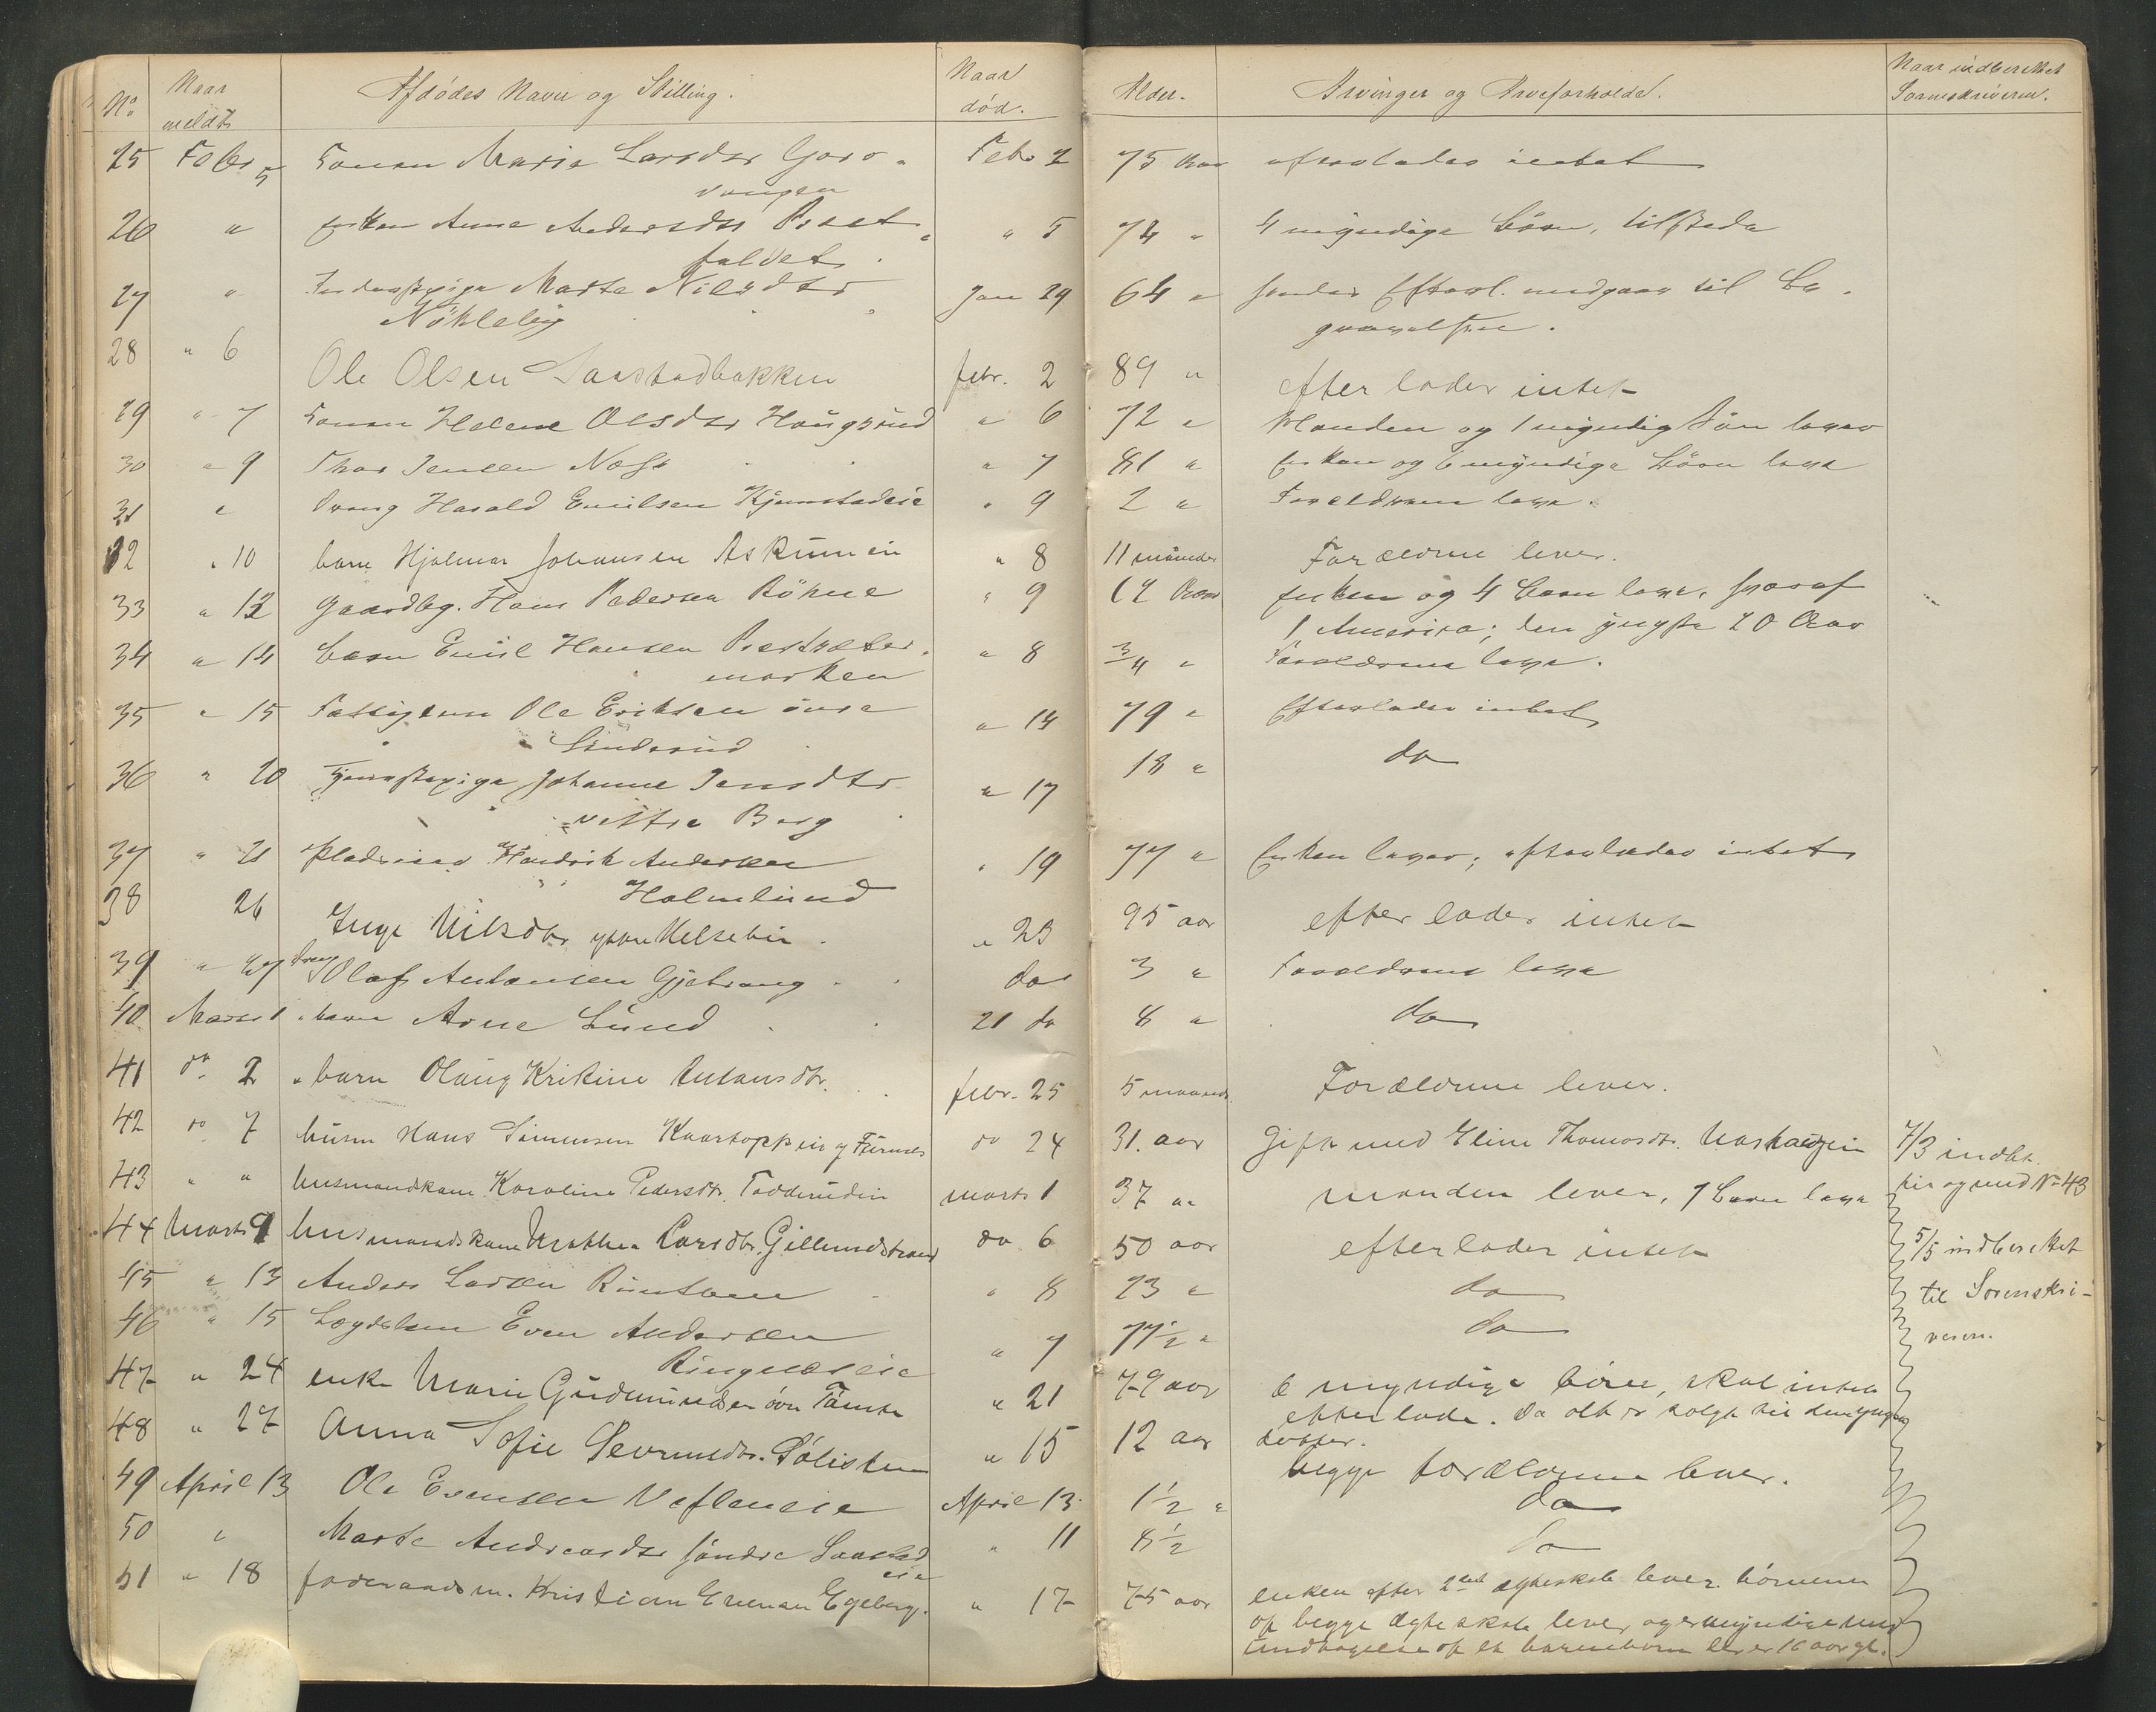 No Naar meldt Afdödes Navn og Stilling. Naar död. Alder. Arvinger og Arveforholde. Naar indberettet Sorenskriveren.
25 Febr 5 Konen Marie Larsdtr Goro- Febr 2 75 Aar efterlader intet
vangen
26 " Enken Anne Andersdtr " 5 74 " 4 myndige Börn, tilstede
faldet
27 " Marte Nilsdtr Jan 29 64 " Efterl. medgaar til Be-
Nökleby gravelsen.
28 " 6 Ole Olsen Saastadbakken febr. 2 89 " efterlader intet
29 " 7 Konen Helene Olsdtr Haugsrud " 6 72 " Manden og 1 myndig Sön lever
30 " 9 Thor Jensen Næss " 7 81 " Enken og 6 myndige Börn leve
31 " Dreng Harald Emilsen Kjonstadeie " 9 2 " Forældrene leve.
32 " 10 barn Hjalmar Johansen Askimein " 8 11 maaneder Forældrene lever.
33 " 12 Gaardbg. Hans Pedersen Böhne " 9 62 Aar Enken og 4 Börn leve, hvoraf
1 Amerika; den yngste 20 Aar
34 " 14 Barn Emil Hansen " 8 3/4 " Forældrene leve.
marken
35 " 15 Fattiglem Ole Eriksen övre " 14 79 " Efterlader intet
Linderud
36 " 20 Tjenestepige Johanne Jensdtr " 17 18 " do
vestre Berg
37 " 21 Pladseier Hendrik Andersen " 19 77 " Enken lever; efterlader intet
Holmlund
38 26 Inge Nilsdtr " 23 95 aar efterlader intet
39 " 27 Dreng Olaf Antonsen Gjetvang do 3 " Forældrene leve
40 Marts 1 barn Arne Lund 21 do 8 " do
41 do 2 barn Olaug Kristine Antonsdtr. febr. 25 5 maaneder Forældrene lever.
42 do 7 husm Hans Simensen Kaartoppen y Furnes do 24 31. aar Gift med Eline Thomasdtr. 7/3 indbt.
43 " " husmandkone Karoline Pedersdtr. Todderudein marts 1 37 aar manden lever, 1 Barn leve her og med No 43
44 Marts 9 husmandskone Mathea Larsdtr. Gillundstrand do 6 50 aar efterlader intet 5/5 indberettet
45 " 13 Anders Larsen Rustben " 8 23 " do til Sorenskri-
46 " 15 Lægdslem Even Andersen " 7 77 1/2 " do veren.
Ringneseie
47 " 24 enke Marie Gudmundsen övr Tömte " 21 79 aar 6 myndige börn, skal intet
efterlade. Da alt er solgt til den yngste
datter.
48 " 27 Anna Sofie Sevrinsdtr. Sölisten " 15 12 aar begge forældrene lever.
49 April 13 Ole Evensen Vefleneie April 13 1 1/2 " do
50 " Marte Andreasdtr söndre Saastad " 11 8 1/2 do
eie
51 " 18 foderaadsm. Kristian Evensen Egeberg. " 17 75 aar enken efter 2det ægteskab lever. börnene
af begge ægteskab lever, og er myndige med
Undtagelse af et barnebarn der er 16 aar gl.